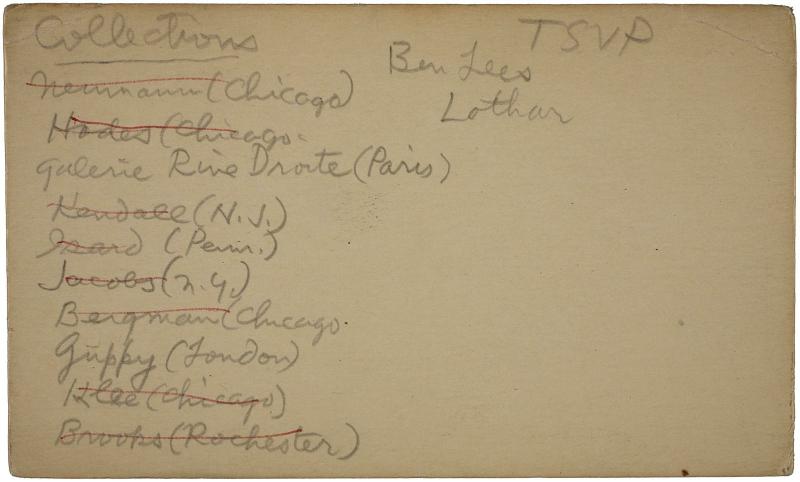 Collections
Neumann (Chicago)
Hodes (Chicago.
Galerie Rive Droite (Paris)
Kendall (N.J.)
Isard (Penn.)
Jacobs (N.Y.)
Bergman (Chicago
Guppy (London)
Klee (Chicago)
Brooks (Rochester)
TSVP
Ben Lees
Lothar